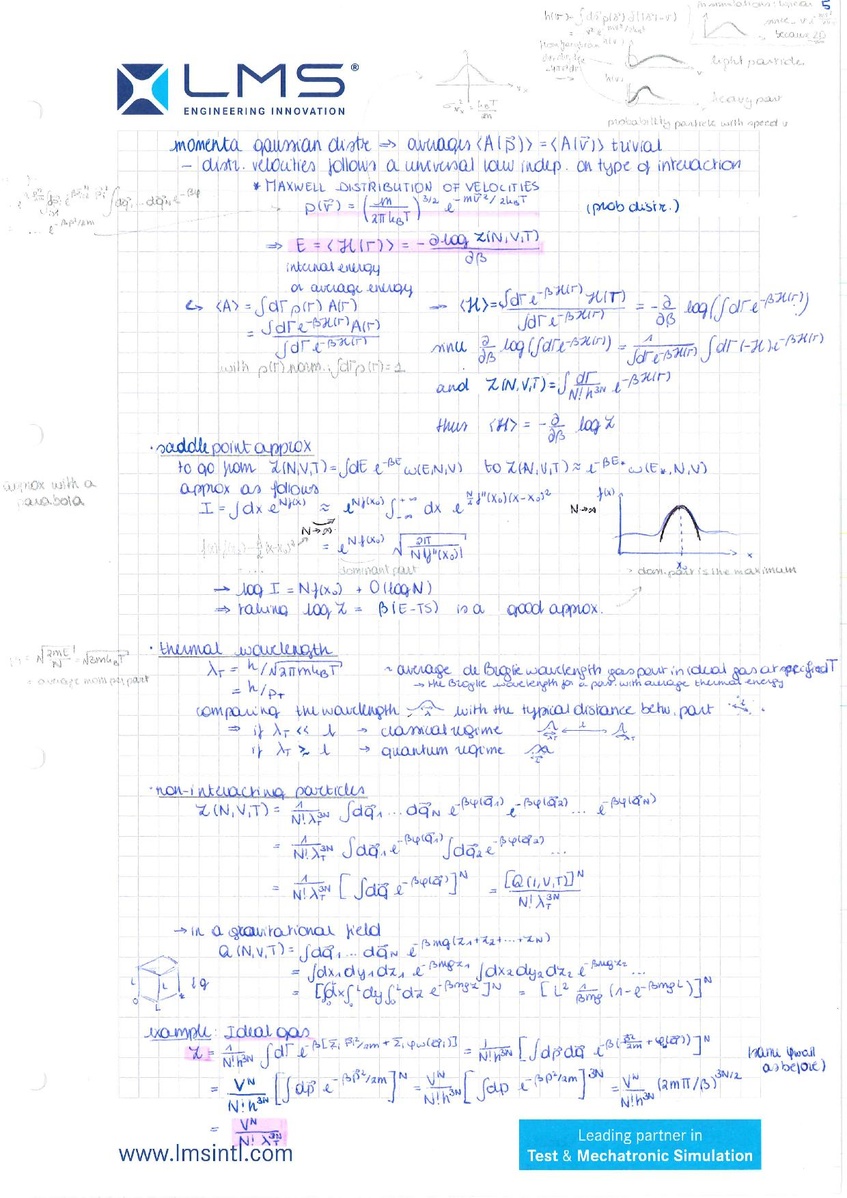 5
h(v) = ∫dp⃗ p(p⃗) δ(|p⃗|-v)
since
because 2D
light particle
heavy part
probability particle with speed v
LMS®
ENGINEERING INNOVATION
momenta gaussian distr ⇒ averages ⟨A(p⃗)⟩ = ⟨A(v⃗)⟩ trivial
- distr. velocities follows a universal law indep. on type of interaction
* MAXWELL DISTRIBUTION OF VELOCITIES
p(v⃗) = (m/2πk_BT)^{3/2} e^{-mv⃗²/2k_BT} (prob distr.)
⇒ E = ⟨H(Γ)⟩ = -∂log Z(N,V,T)/∂β
internal energy
or average energy
↳ ⟨A⟩ = ∫dΓ ρ(Γ) A(Γ)
= ∫dΓ e^{-βH(Γ)} A(Γ) / ∫dΓ e^{-βH(Γ)}
with ρ(Γ) norm.: ∫dΓ ρ(Γ) = 1
→ ⟨H⟩ = ∫dΓ e^{-βH(Γ)} H(Γ) / ∫dΓ e^{-βH(Γ)} = -∂/∂β log(∫dΓ e^{-βH(Γ)})
since ∂/∂β log(∫dΓ e^{-βH(Γ)}) = 1/∫dΓ e^{-βH(Γ)} ∫dΓ (-H) e^{-βH(Γ)}
and Z(N,V,T) = ∫ dΓ/N!h^{3N} e^{-βH(Γ)}
thus ⟨H⟩ = -∂/∂β log Z
· saddle point approx
to go from Z(N,V,T) = ∫dE e^{-βE} ω(E,N,V) to Z(N,V,T) ≈ e^{-βE*} ω(E*,N,V)
approx as follows
approx with a
parabola
I = ∫dx e^{Nf(x)} ≈ e^{Nf(x₀)} ∫_{-∞}^{+∞} dx e^{N/2 f''(x₀)(x-x₀)²}
N→∞
= e^{Nf(x₀)} √(2π/N|f''(x₀)|)
dominant part
N→∞ f(x) x x₀
→ dom. part is the maximum
→ log I = Nf(x₀) + O(log N)
→ taking log Z = β(E-TS) is a good approx.
· thermal wavelength
= average mom per part
λ_T = h/√(2πmk_BT) ~ average de Broglie wavelength gas part in ideal gas at specified T
= h/p_T → the Broglie wavelength for a part. with average thermal energy
comparing the wavelength λ with the typical distance betw. part
⇒ if λ_T << l → classical regime
if λ_T ≥ l → quantum regime
· non-interacting particles
Z(N,V,T) = 1/N!λ_T^{3N} ∫dq⃗₁ ... dq⃗_N e^{-βφ(q⃗₁)} e^{-βφ(q⃗₂)} ... e^{-βφ(q⃗_N)}
= 1/N!λ_T^{3N} ∫dq⃗₁ e^{-βφ(q⃗₁)} ∫dq⃗₂ e^{-βφ(q⃗₂)} ...
= 1/N!λ_T^{3N} [∫dq⃗ e^{-βφ(q⃗)}]^N = [Q(1,V,T)]^N / N!λ_T^{3N}
→ in a gravitational field
Q(N,V,T) = ∫dq⃗₁ ... dq⃗_N e^{-βmg(z₁+z₂+...+z_N)}
= ∫dx₁dy₁dz₁ e^{-βmgz₁} ∫dx₂dy₂dz₂ e^{-βmgz₂} ...
= [∫₀^L dx ∫₀^L dy ∫₀^L dz e^{-βmgz}]^N = [L² 1/βmg (1-e^{-βmgL})]^N
L 0 L L ↓g
example: Ideal gas
Z = 1/N!h^{3N} ∫dΓ e^{-β[Σᵢ p⃗ᵢ²/2m + Σᵢ φw(q⃗ᵢ)]} = 1/N!h^{3N} [∫dp⃗dq⃗ e^{-β(p⃗²/2m + φ(q⃗))}]^N
as before)
= V^N/N!h^{3N} [∫dp⃗ e^{-βp⃗²/2m}]^N = V^N/N!h^{3N} [∫dp e^{-βp²/2m}]^{3N} = V^N/N!h^{3N} (2mπ/β)^{3N/2}
= V^N/N!λ_T^{3N}
www.lmsintl.com
Leading partner in
Test & Mechatronic Simulation